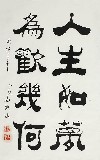 人生如夢
為歡幾何